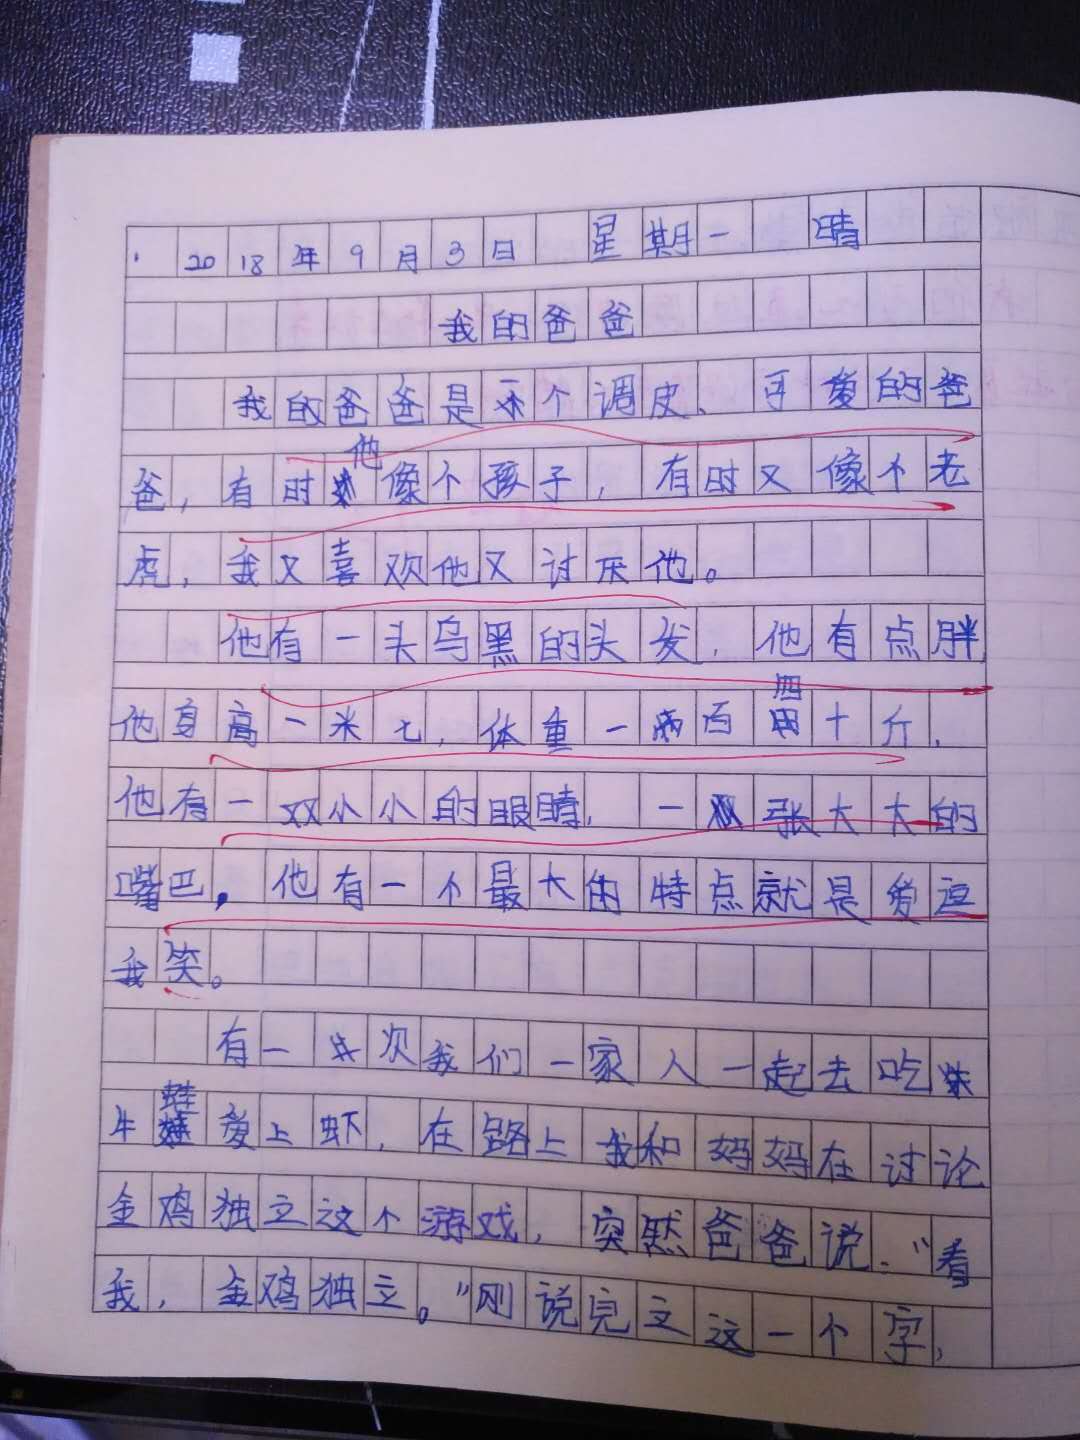 2018年9月3日 星期一 晴
我的爸爸
我的爸爸是个调皮、可爱的爸
爸，有时他像个孩子，有时又像个老
虎，我又喜欢他又讨厌他。
他有一头乌黑的头发，他有点胖，
他身高一米七，体重一百四十斤，
他有一双小小的眼睛，一张大大的
嘴巴，他有一个最大的特点就是爱逗
我笑。
有一次我们一家人一起去吃
牛蛙爱上虾，在路上我和妈妈在讨论
金鸡独立这个游戏，突然爸爸说：“看
我，金鸡独立。”刚说完立这一个字，